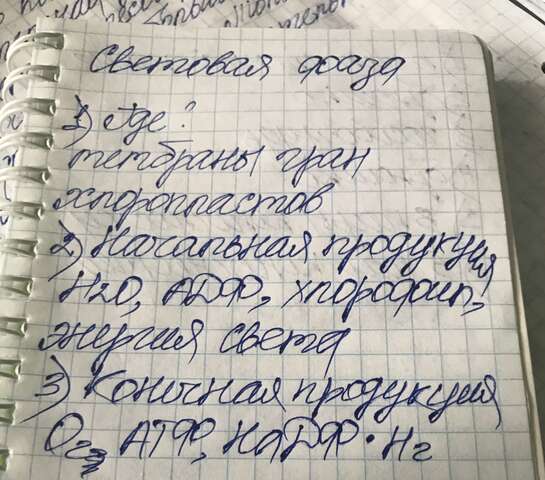 Световая фаза
1) Где?
мембраны гран
хлоропластов
2) Начальная продукция
H2O, АДФ, хлорофил,
энергия света
3) Конычная продукция
O2, АТФ, НАДФ • H2